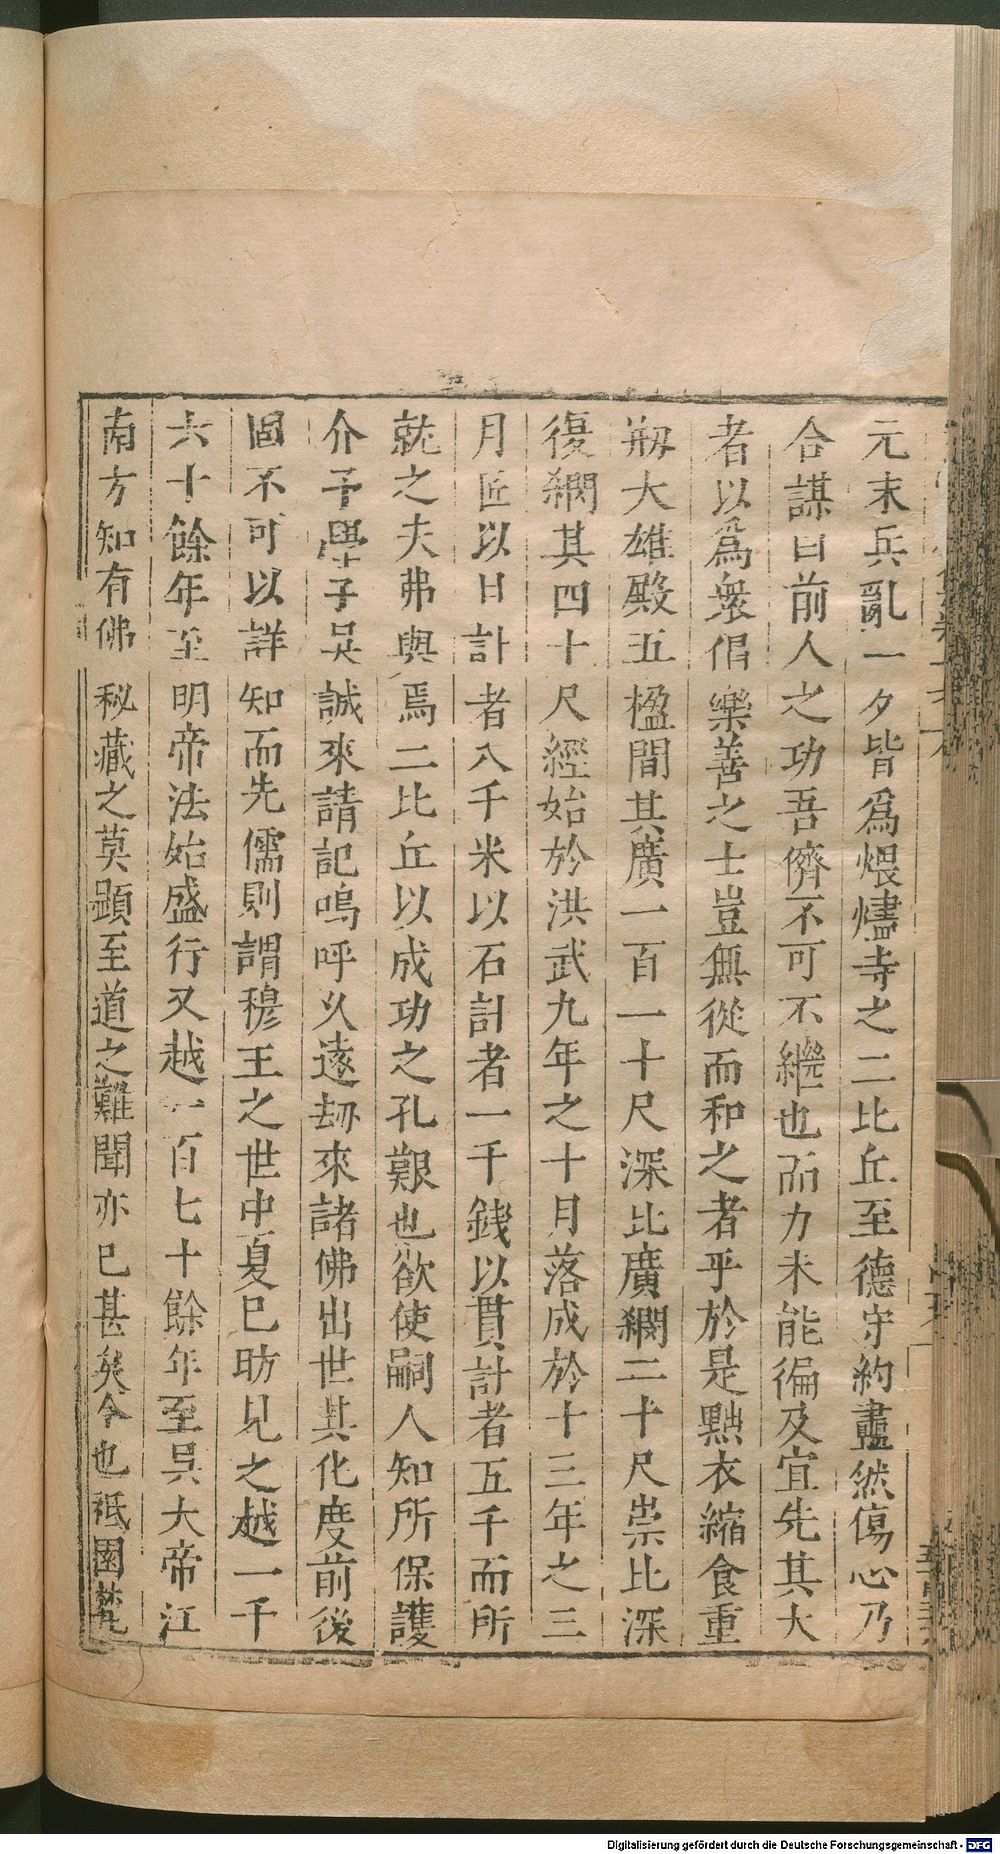 元末兵亂一夕皆爲煨燼寺之二比丘至德守約盡然傷心乃
合謀曰前人之功吾儕不可不繼也而力未能徧及宜先其大
者以爲衆倡樂善之士豈無從而和之者乎於是黜衣縮食重
剏大雄殿五楹間其廣一百一十尺深比廣綱二十尺崇比深
復綱其四十尺經始於洪武九年之十月落成於十三年之三
月匠以日計者八千米以石計者一千錢以貫計者五千而所
就之夫弗與焉二比丘以成功之孔艱也欲使嗣人知所保護
介予學子吴誠來請記嗚呼久遠刼來諸佛出世其化度前後
固不可以詳知而先儒則謂穆王之世中夏已昉見之越一千
六十餘年至明帝法始盛行又越一百七十餘年至吳大帝江
南方知有佛秘藏之莫顯至道之難聞亦已甚矣今也祗園梵
Digitalisierung gefördert durch die Deutsche Forschungsgemeinschaft - DFG